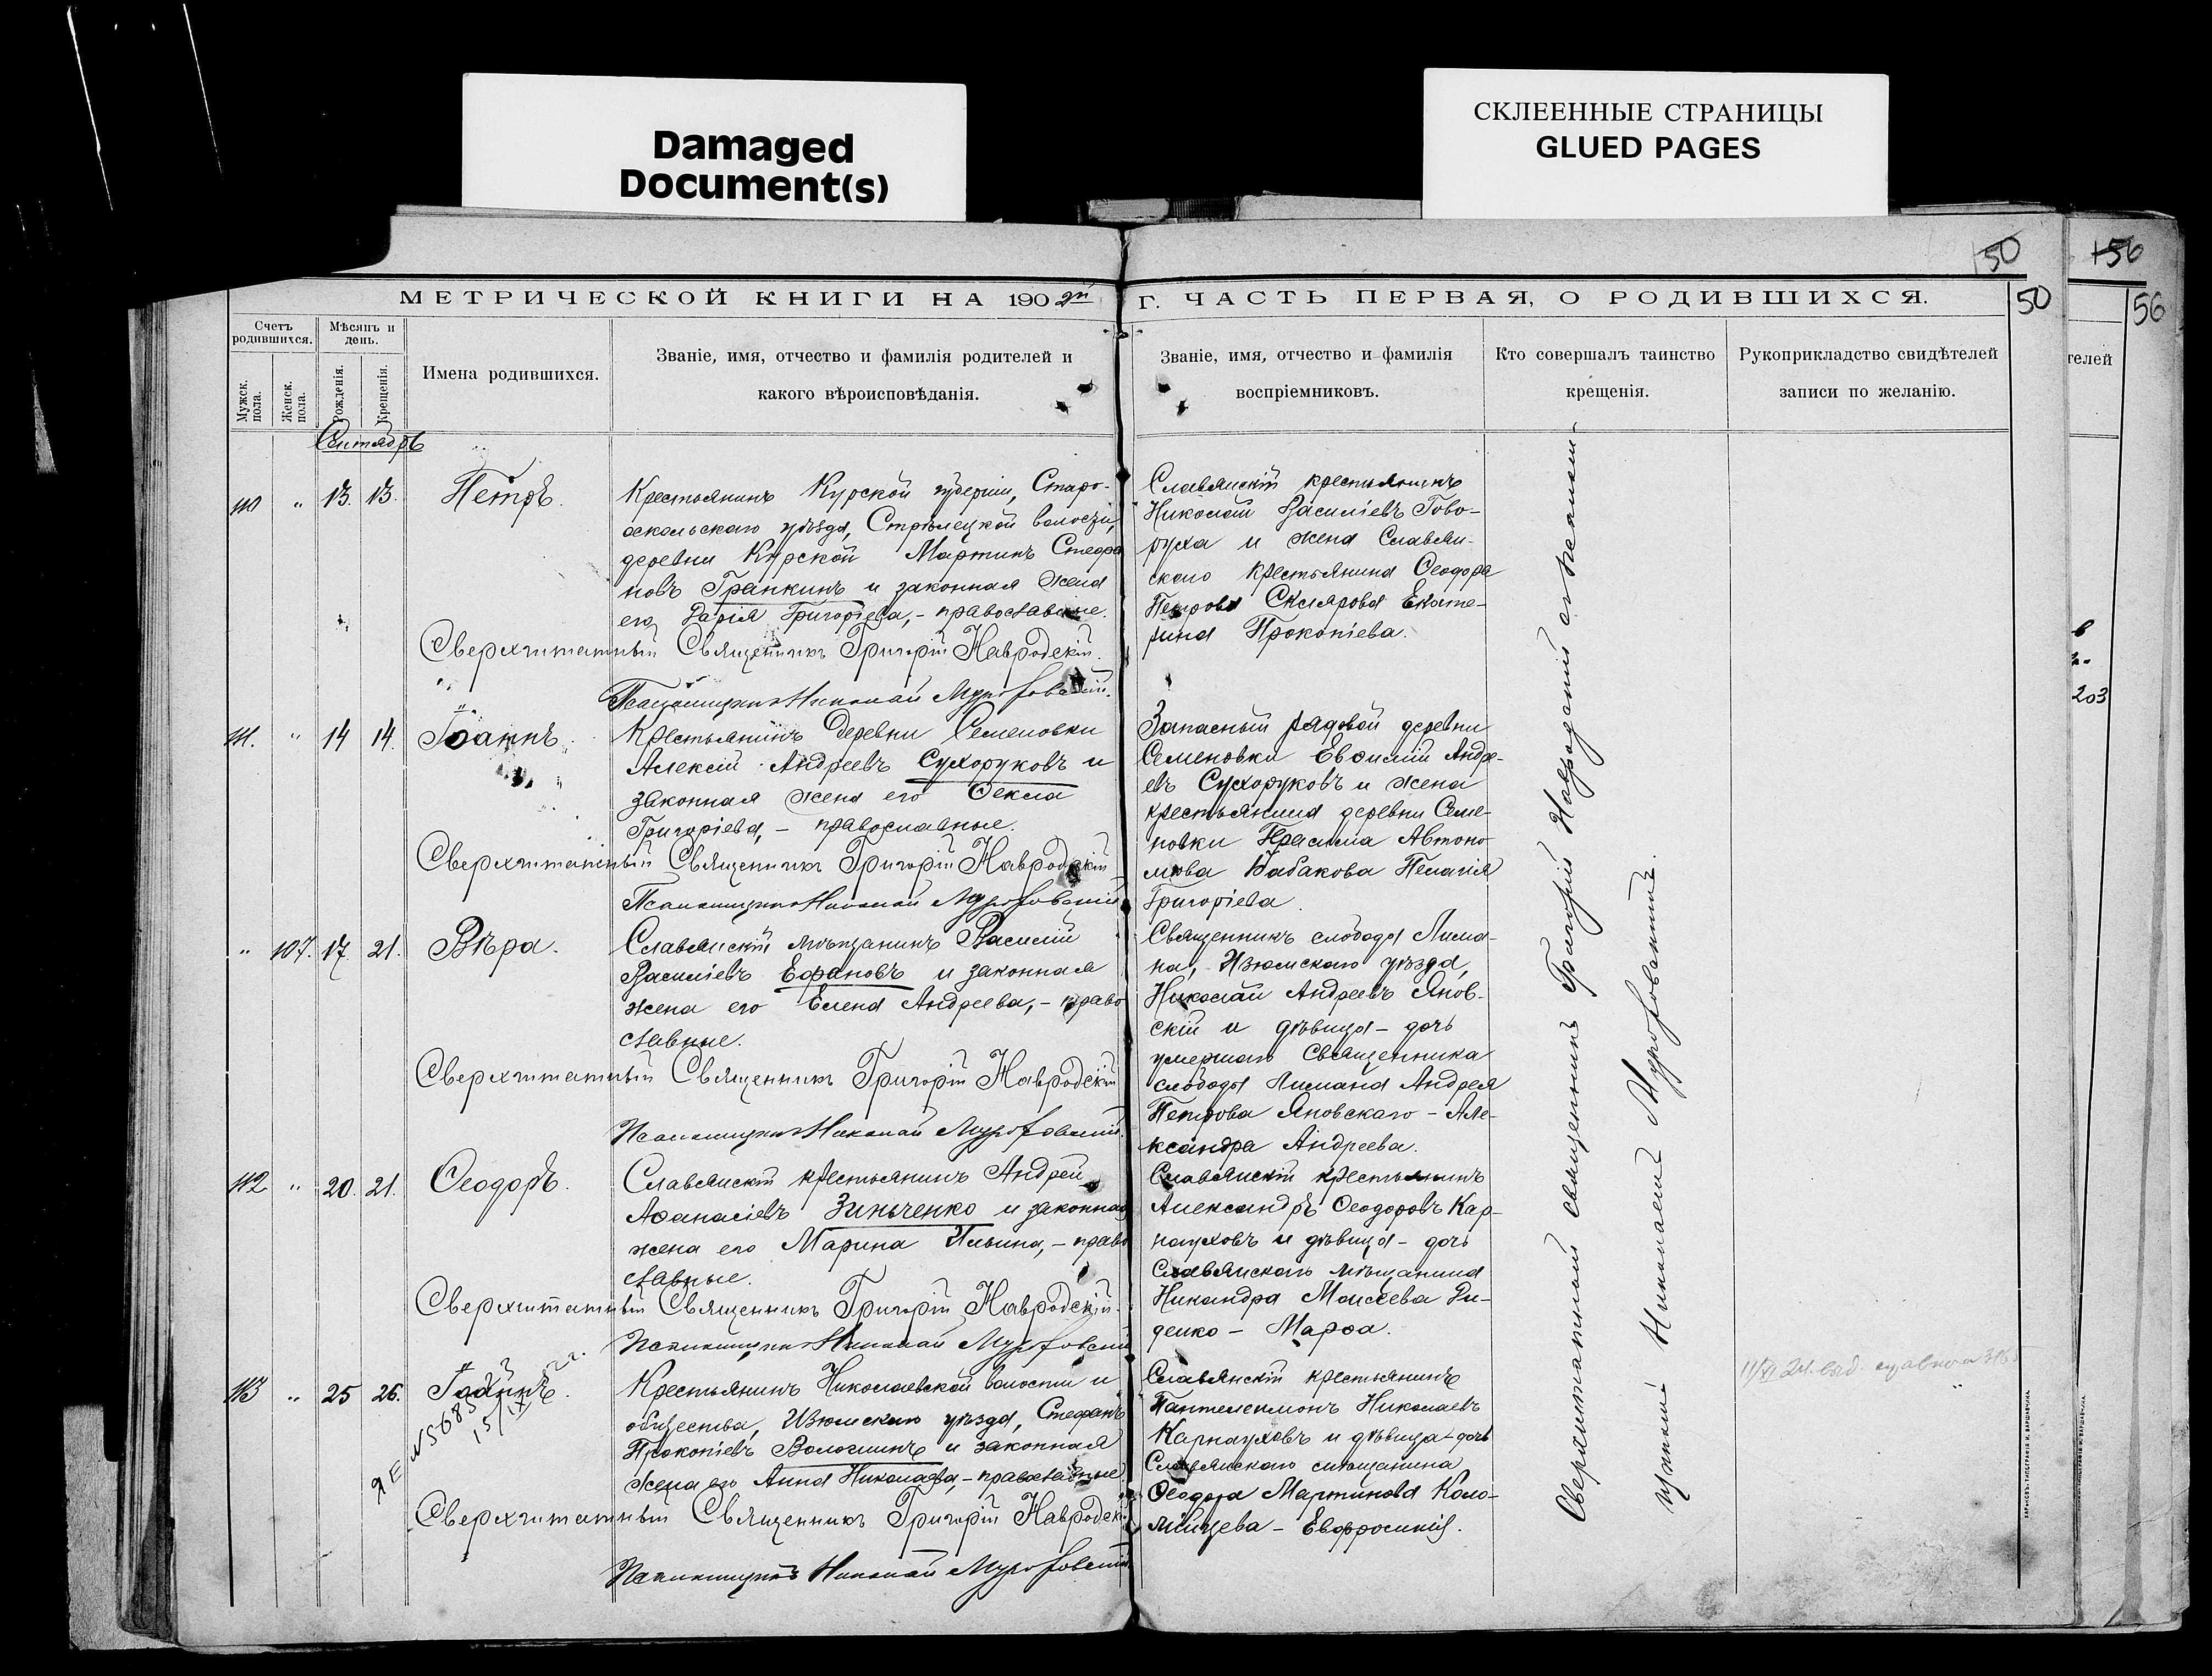 Damaged
Document(s)
СКЛЕЕННЫЕ СТРАНИЦЫ
GLUED PAGES
50
156
МЕТРИЧЕСКОЙ КНИГИ НА 1902й
Г. ЧАСТЬ ПЕРВАЯ, О РОДИВШИХСЯ.
50
56
Счетъ родившихся.
Мужск. пола.
Женск. пола.
Мѣсяцъ и день.
Рожденія.
Крещенія.
Имена родившихся.
Званіе, имя, отчество и фамилія родителей и
какого вѣроисповѣданія.
Званіе, имя, отчество и фамилія
воспріемниковъ.
Кто совершалъ таинство
крещенія.
Рукоприкладство свидѣтелей
записи по желанію.
телей
Сентябрь
110 " 13. 13. Петръ.
Крестьянинъ Курской губерніи, Старо-
оскольскаго уѣзда, Стрѣлецкой волости,
деревни Курской Мартинъ Стефа
новъ Гранкинъ и законная жена
его Дарія Григоріева, - православные.
Сверхштатный Священникъ Григорій Навродскій.
Псаломщикъ Николай Муrоfовскій.
Славянскій крестьянинъ
Николай Василіевъ Гово-
руха и жена Славян-
скаго крестьянина Ѳеодора
Петрова Склярова Екате-
рина Прокопіева.
111. " 14 14. Іоаннъ.
Крестьянинъ деревни Семеновки
Алексій Андреевъ Сухоруковъ и
законная жена его Ѳекла
Григоріева, - православные.
Сверхштатный Священникъ Григорій Навродскій
Псаломщикъ Николай
Запасный рядовой деревни
Семеновки Евѳимій Андре-
евъ Сухоруковъ и жена
крестьянина деревни Семе-
новки Герасима Автоно
мова Бабакова Пелагія
Григоріева.
" 107. 17 21. Вѣра.
Славянскій мѣщанинъ Василій
Василіевъ Ефановъ и законная
жена его Елена Андреева, - право
славные.
Сверхштатный Священникъ Григорій Навродскій
Псаломщикъ Николай
Священникъ слободы Лима-
на, Изюмскаго уѣзда,
Николай Андреевъ Янов-
скій и дѣвица - дочь
умершаго Священника
слободы Лимана Андрея
Петрова Яновскаго - Але-
ксандра Андреева.
112 " 20. 21. Ѳеодоръ.
Славянскій крестьянинъ Андрей
Аѳанасіевъ Зинченко и законная
жена его Марина Ильина, - право
славные.
Сверхштатный Священникъ Григорій Навродскій.
Псаломщикъ Николай
Славянскій крестьянинъ
Александръ Ѳеодоровъ Кар-
науховъ и дѣвица - дочь
Славянскаго мѣщанина
Никандра Моисеева Ди-
денко - Марѳа.
113 " 25 26. Іоаннъ.
Крестьянинъ Николаевской волости и
общества, Изюмскаго уѣзда, Стефанъ
Прокопіевъ Волошинъ и законная
жена его Анна Николаева, - православные
Сверхштатный Священникъ Григорій Навродскі
Псаломщикъ Николай
Славянскій крестьянинъ
Пантелеимонъ Николаевъ
Карнауховъ и дѣвица - дочь
Славянскаго мѣщанина
Ѳеодора Мартинова Коло-
мійцева - Евфросинія.
Сверхштатный священникъ Григорій Навродскій
203